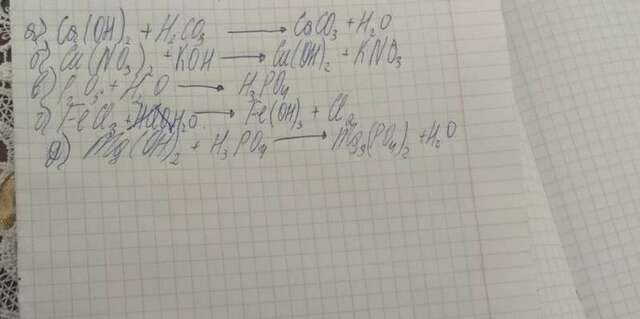 а) Ca(OH)₂ + H₂CO₃ → CaCO₃ + H₂O
б) Cu(NO₃)₂ + KOH → Cu(OH)₂ + KNO₃
в) P₂O₅ + H₂O → H₃PO₄
б) FeCl₃ + H₂O → Fe(OH)₃ + Cl₂
д) Mg(OH)₂ + H₃PO₄ → Mg₃(PO₄)₂ + H₂O